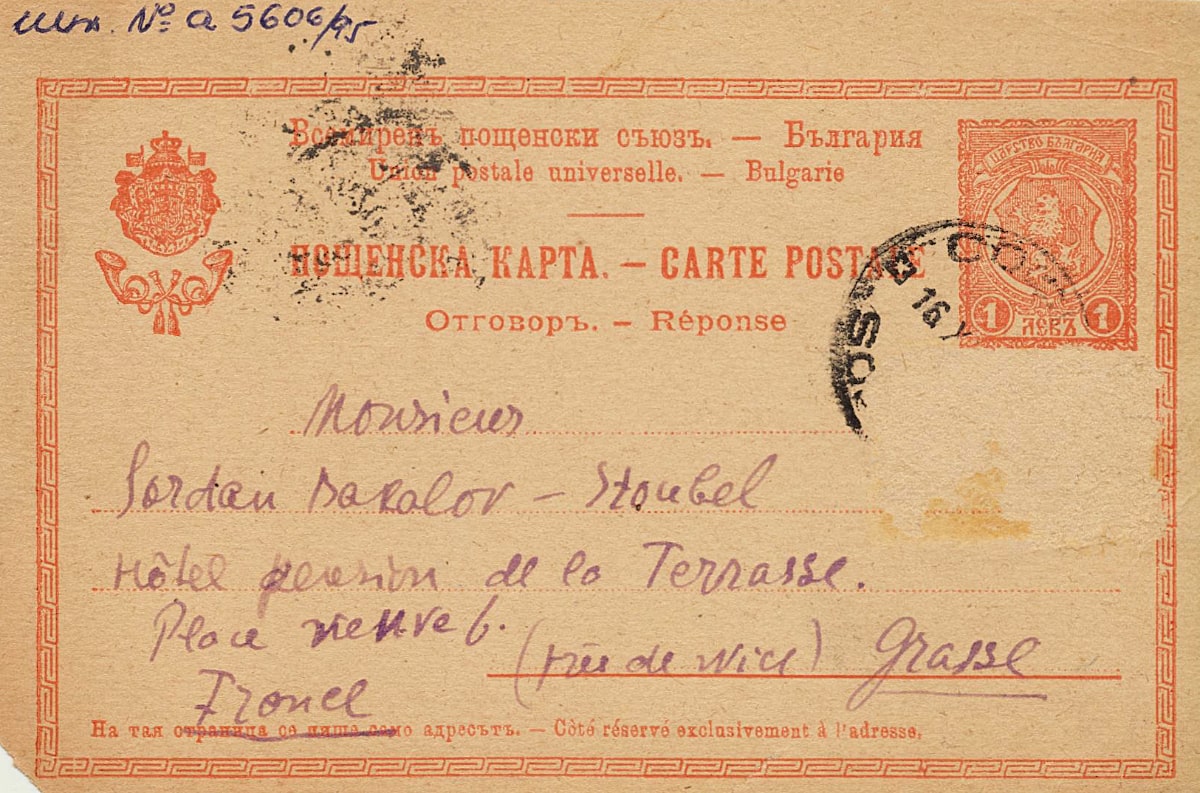 Инв. № а 5606/95
Всемиренъ пощенски съюзъ. — България
Union postale universelle. — Bulgarie
ЦАРСТВО БЪЛГАРИЯ
ПОЩЕНСКА КАРТА. — CARTE POSTALE
Отговоръ. — Réponse
SO
16 X
1 ЛЕВЪ 1
Monsieur
Jordan Bakalov — Stoubel
Hôtel pension de la Terrasse.
Place neuve 6.
(près de Nice) Grasse
France
На тая страница се пише само адресътъ. — Côté réservé exclusivement à l'adresse.